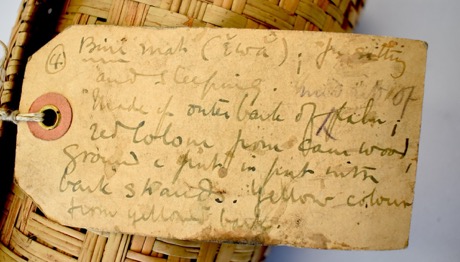 ④ Bini mat (Ewa); for sitting
and sleeping. made of
"Made of outer bark of palm;
red colour from cam wood,
ground & put in pot with
bark strands. Yellow colour
from yellow